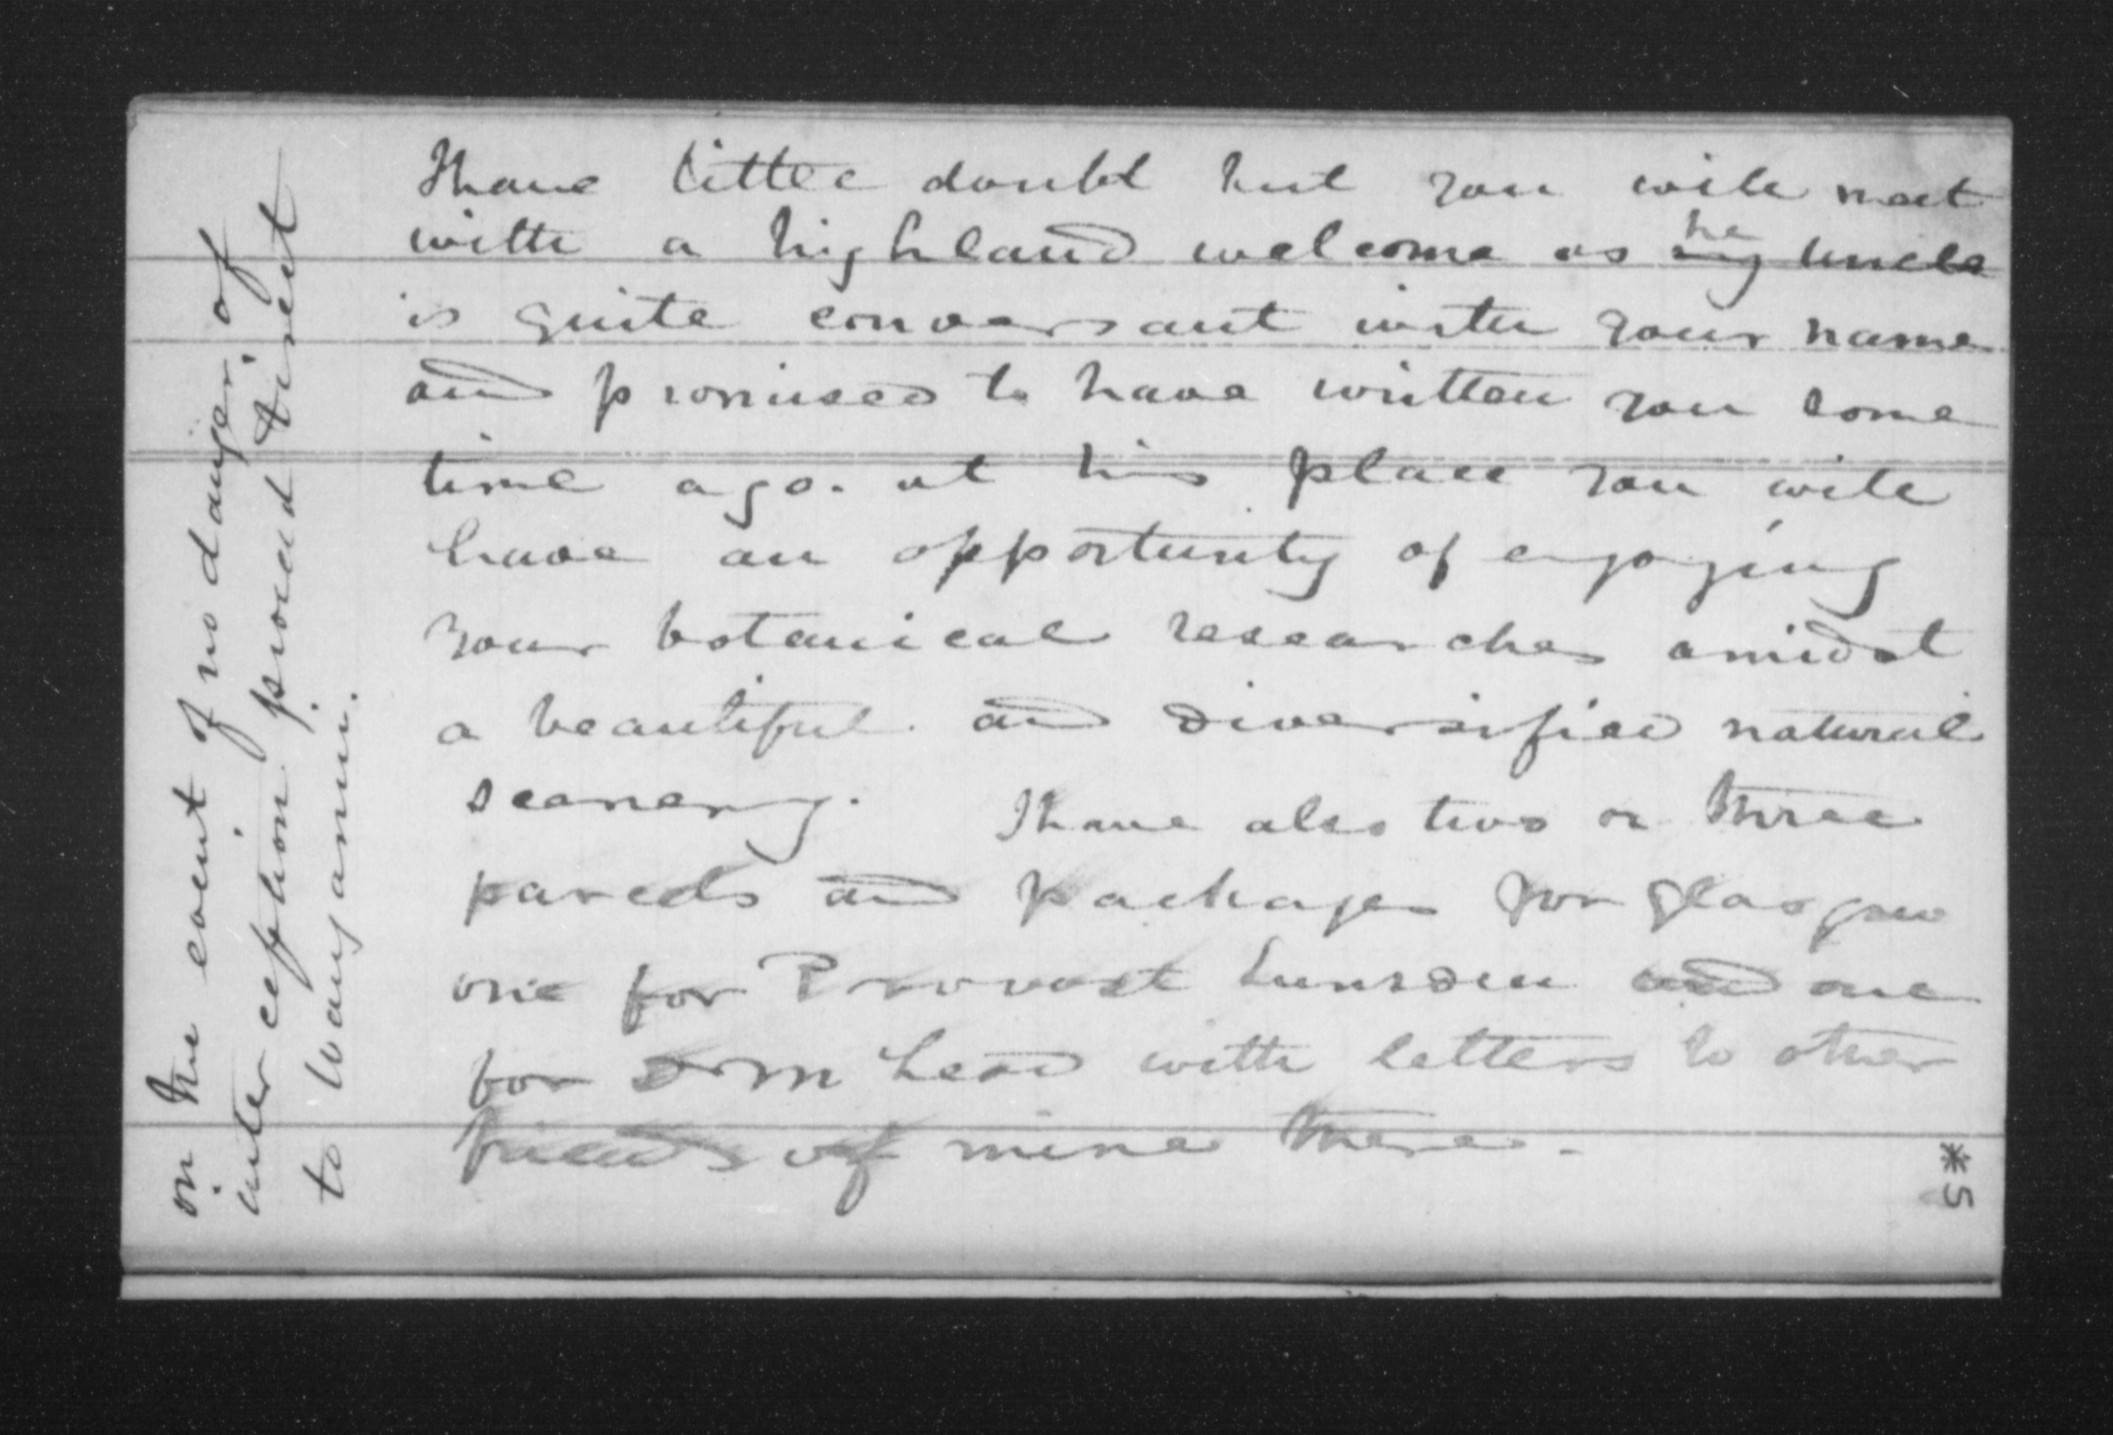 I have little doubt but you will meet
with a highland welcome as he my uncle
is quite conversant with your name
and promised to have written you some
time ago. at his place you will
have an opportunity of enjoying
your botanical researches amidst
a beautiful and diversified natural
scenery. I have also two or three
parcels and packages for glasgow
one for Provost Lumsden and one
for Dr M Lead with letters to other
friends of mine there.
in the event of no danger of
interception proceed direct
to Wanganui.
*5